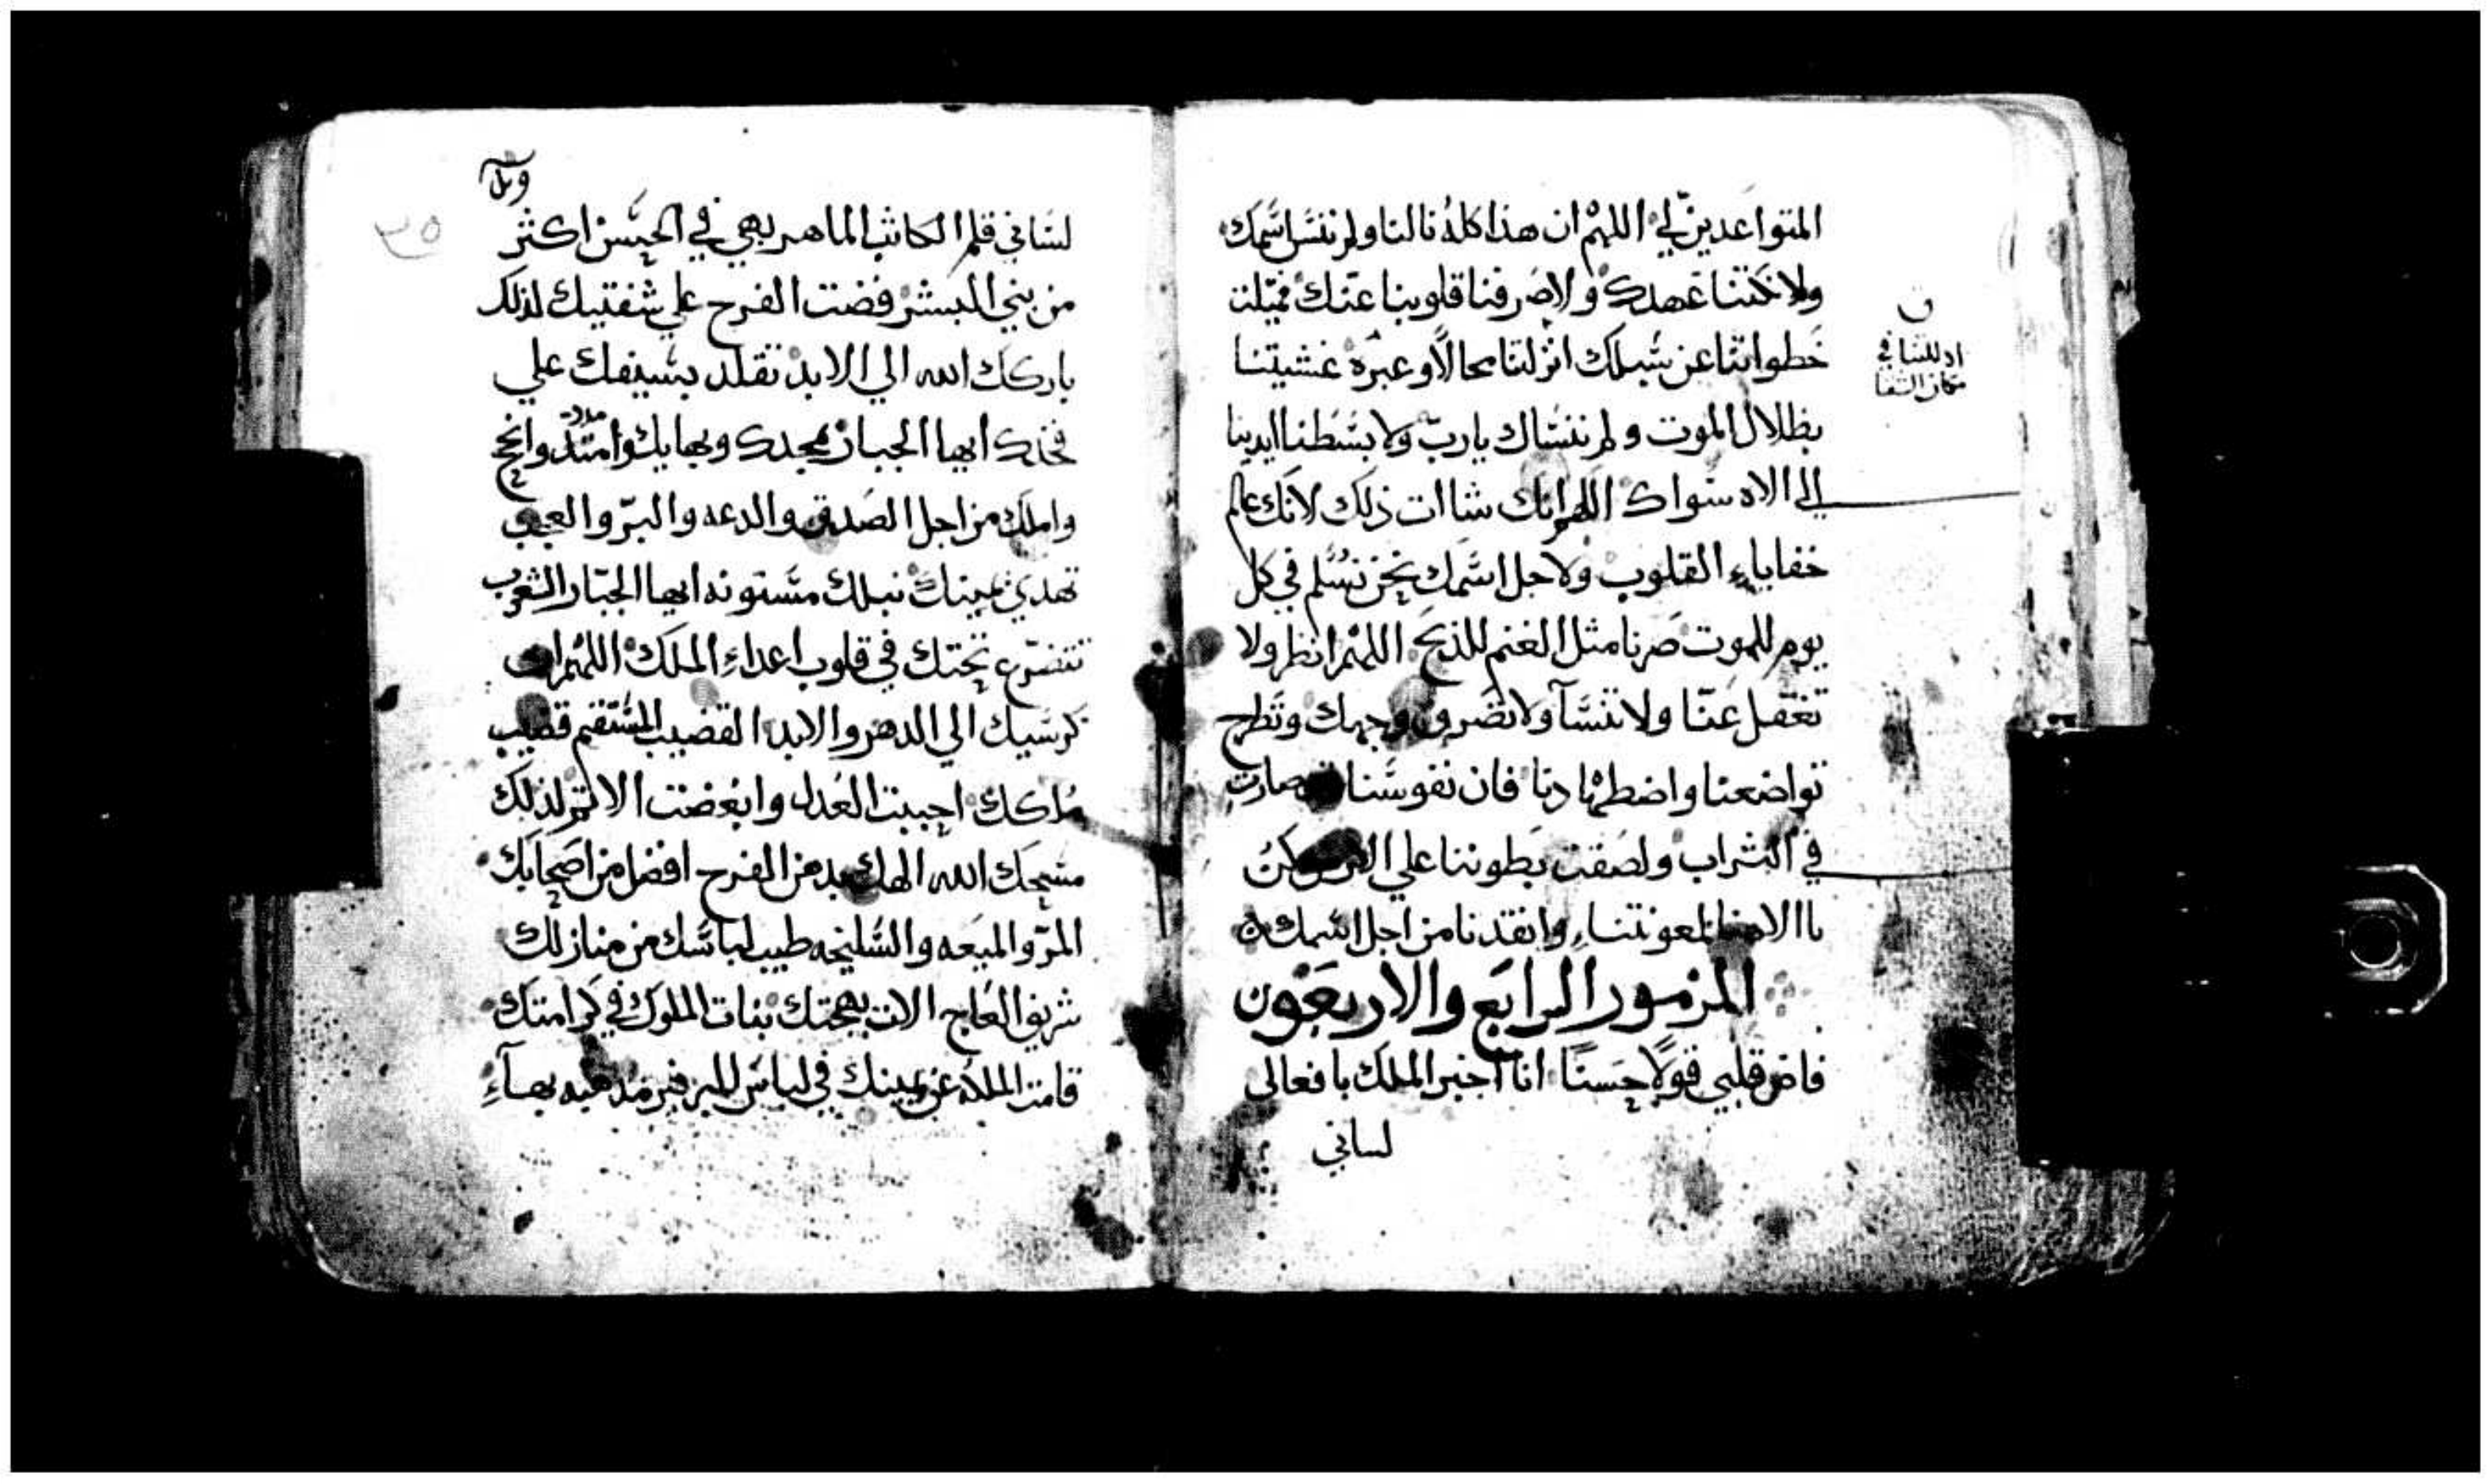 المتواعدين لي اللهم ان هذا كله نالنا ولم ننسا اسمك
ولا خنّنا عهدك ولا صرفنا قلوبنا عنك فميلت
خطواتنا عن سبلك انزلتنا محالًا وعبره غشيتنا
بظلال الموت ولم ننساك يارب ولا بسطنا ايدينا
الي الاه سواك اللهم انك شاات ذلك لانك عالم
خفاياء القلوب ولاجل اسمك نحن نسلم في كل
يوم للموت صرنا مثل الغنم للذبح اللهم انظر ولا
تغفل عنّا ولا تنسآ ولا تصرف وجهك وتطرح
تواضعنا واضطهادنا فان نفوسنا صارت
في التراب ولصقت بطوننا علي
يا الاهنا لمعونتنا وانقدنا من اجل اسمك
المزمور الرابع والاربعون
فاض قلبي قولًا حسنًا انا اخبر الملك بافعالي
لساني
ن
اذللتنا في
مكان الشقا
لساني قلم الكاتب الماهر بهي في الحسن اكثر
من بني البشر فضت الفرح علي شفتيك لذلك
باركك الله الي الابد تقلد بسيفك علي
فخذك ايها الجبار بمجدك وبهايك وامتدّ وانجح
واملك من اجل الصدق والدعه والبرّ والعجب
تهدي يمينك نبلك مسنونه ايها الجبّار الشعوب
تتضرّع تحتك في قلوب اعداء الملك اللهم ان
كرسيك الي الدهر والابد القضيب المستقيم قضيب
ملكك احببت العدل وابغضت الاثم لذلك
مسحك الله الهك بدهن الفرح افضل من اصحابك
المرّ والميعه والسليخه طيب لباسك من منازلك
شريف العاج الات بهجتك بنات الملوك في كرامتك
قامت الملكه عن يمينك في لباس مذهبه بهآء
٣٥